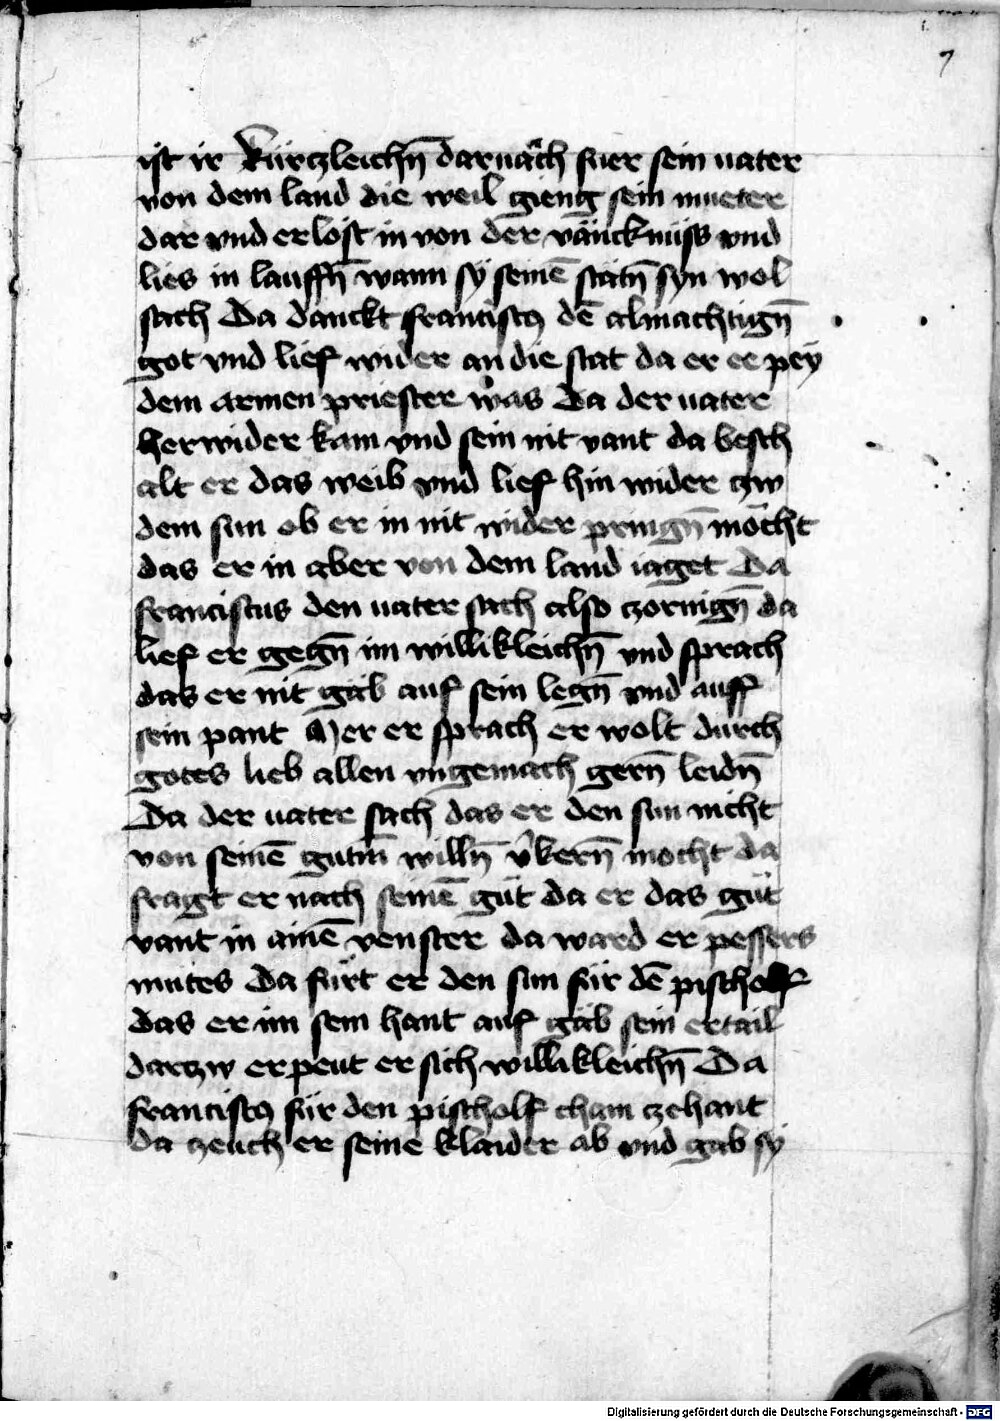 7
ist ir kürczleichn̄ darnăch fuer sein uater
von dem land die weil gieng sein mueter
dar vnd erlost in von der väncknüss vnd
lies in lauffn̄ wann sy seinē stätn̄ syn wol
sach Da danckt franciscꝯ dē almachtign̄
got vnd lief wider an die stat da er ee pey
dem armen priester wͦas Da der uater
herwider kam vnd sein nit vant da besch
alt er das weib vnd lief hin wider czw
dem sun ob er in nit wider pringn̄ möcht
das er in aber von dem land iaget Da
franciscus den uater sach also czornign̄ da
lief er gegn̄ im willikleichn̄ vnd sprach
das er nit gäb auf sein legn̄ vnd auff
sein pant Mer er sprach er wolt durch
gotes lieb allen vngemach gern̄ leidn̄
Da der uater sach das er den sun nicht
von seinē gutm̄ willn̄ v̓kern̄ mocht da
fragt er nach seinē güt da er das güt
vant in ainē venster da ward er pessers
mutes Da fürt er den sun für dē pischolf
das er im sein hant auf gäb sein ertail
darczw erpeut er sich willikleichn̄ Da
franciscꝯ für den pischolf cham czehant
da czeuch er seine klaider ab vnd gab sy
Digitalisierung gefördert durch die Deutsche Forschungsgemeinschaft - DFG